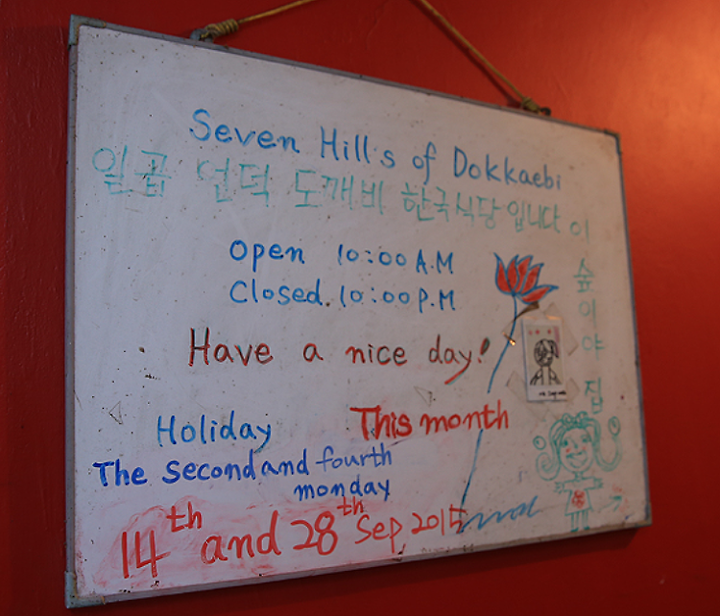 Seven Hills of Dokkaebi
일곱 언덕 도깨비 한국식당입니다
Open 10:00 A.M
Closed. 10:00 P.M
Have a nice day!
Holiday
This month
The second and fourth
monday
14th and 28th Sep 2015